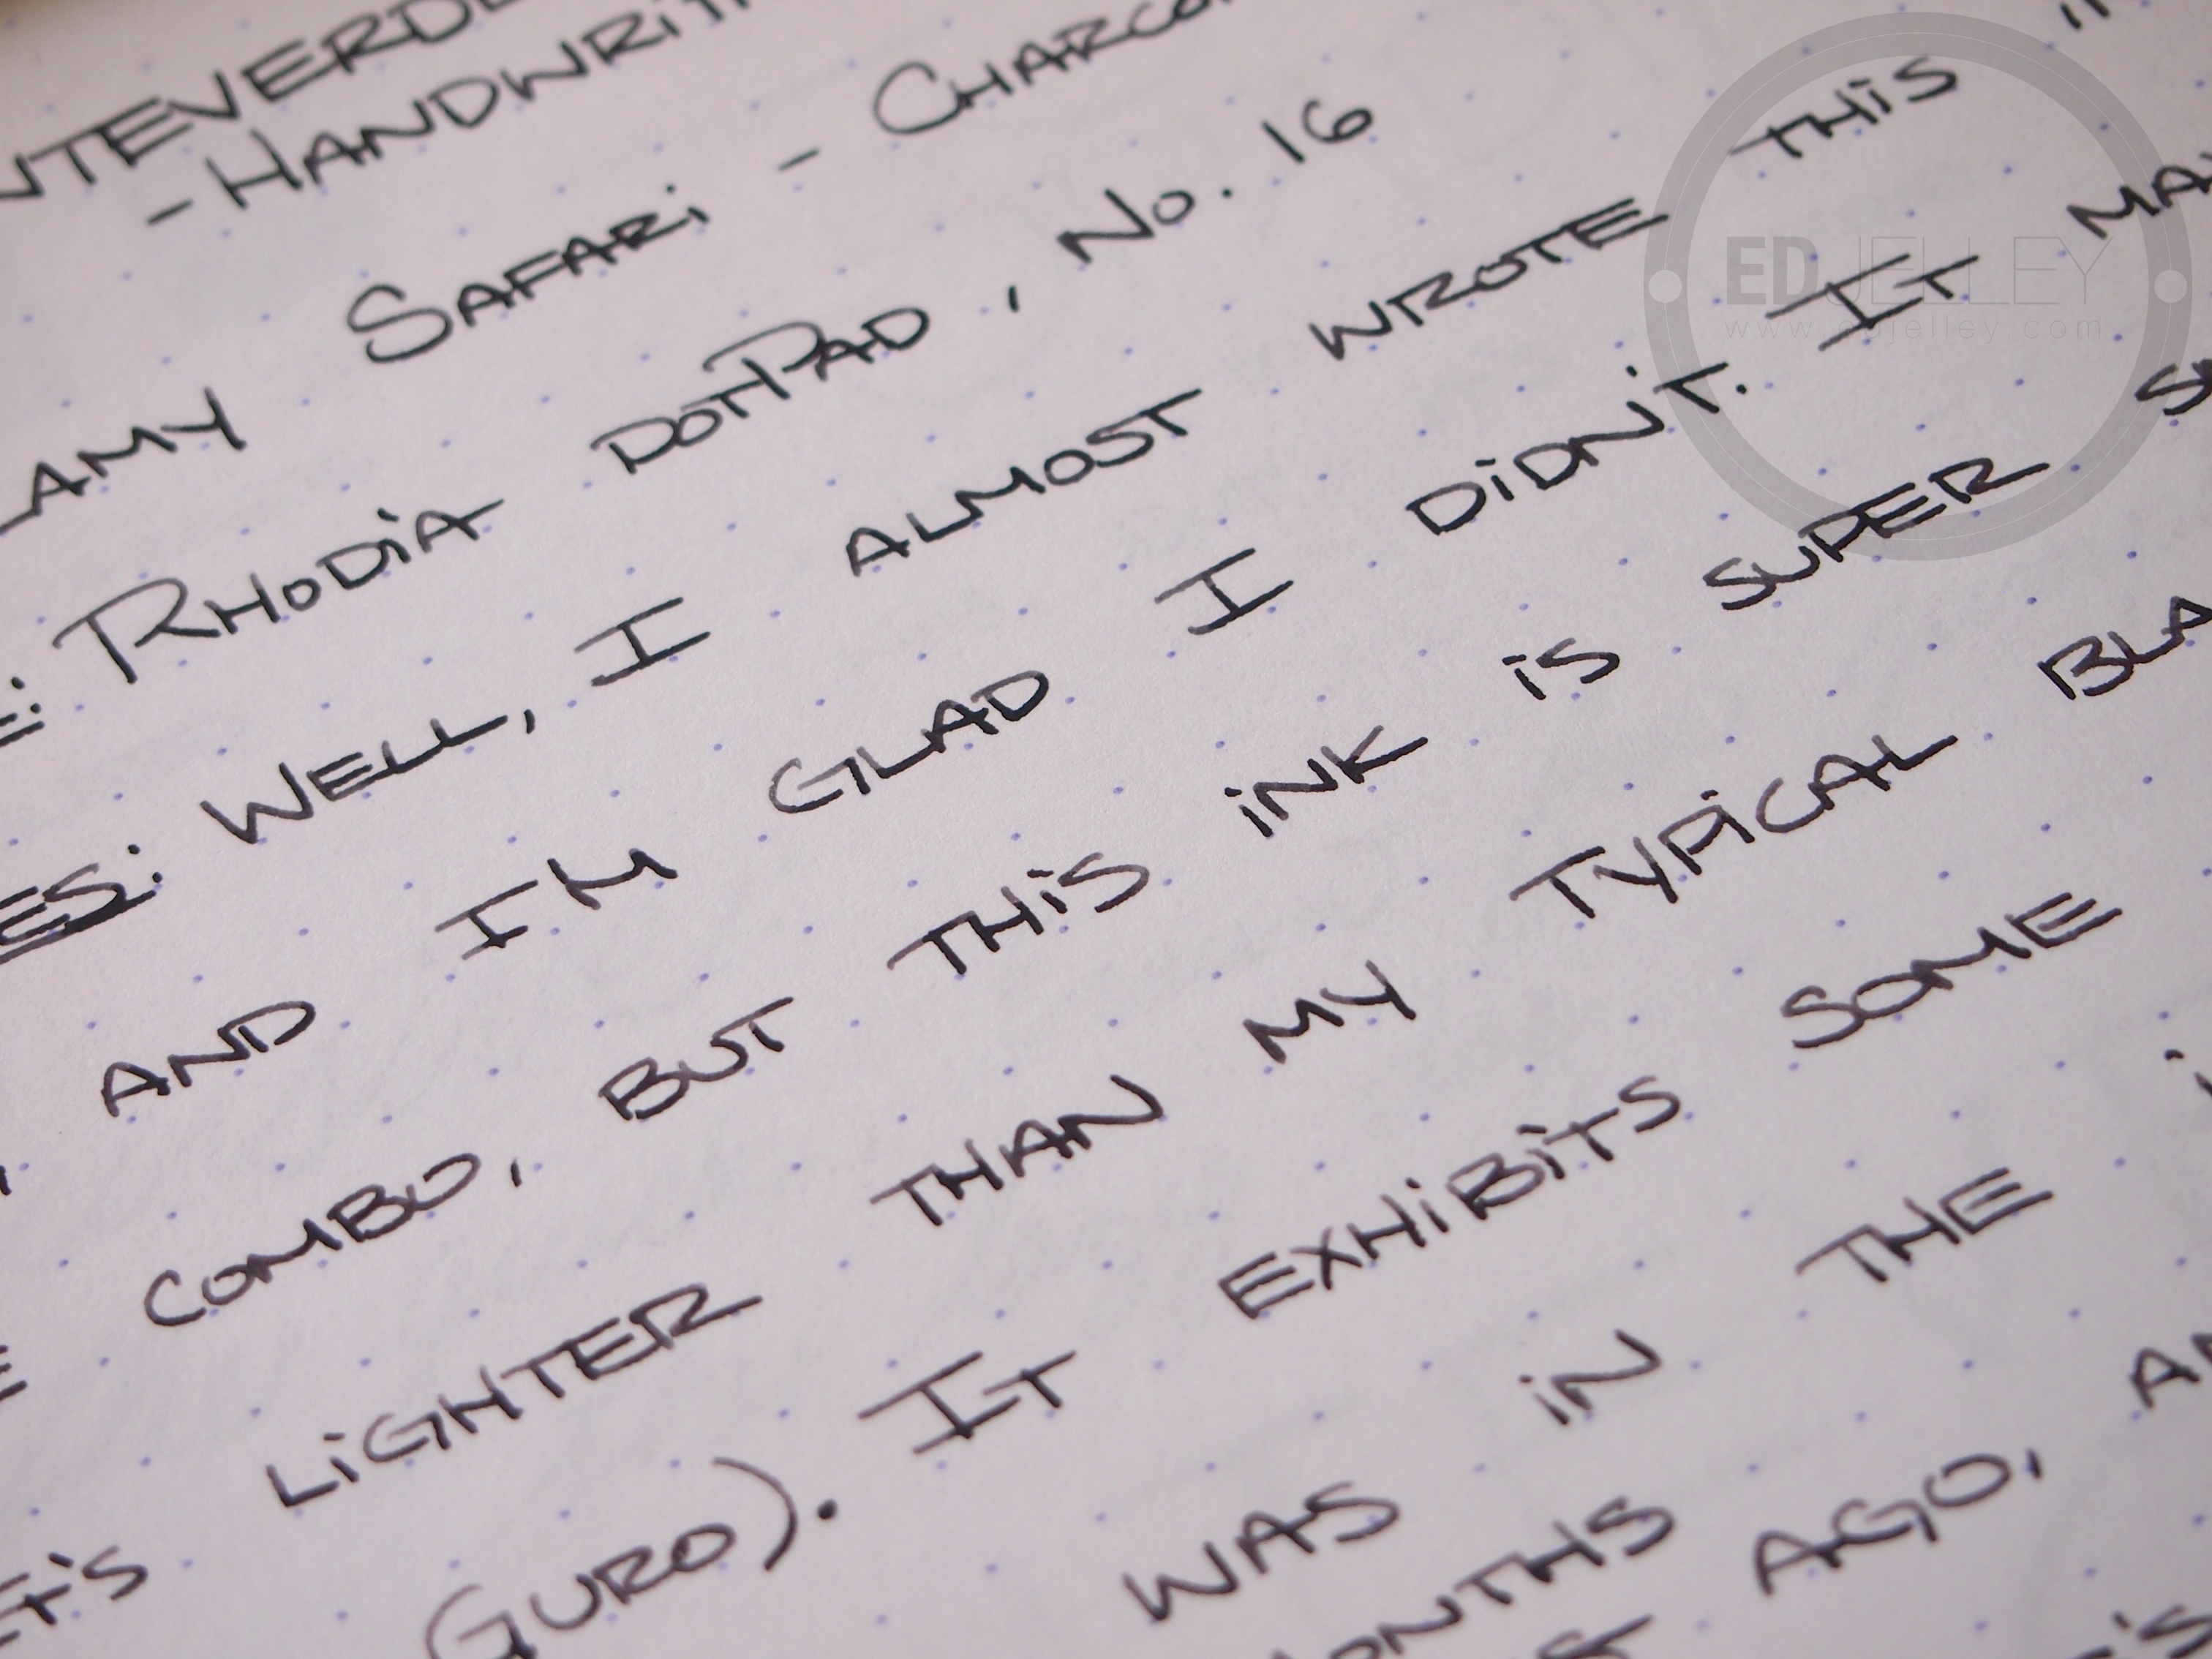 NTEVERD
- HANDWRIT
LAMY SAFARI - CHARCO
E: RHODIA DOTPAD, No. 16
ES: WELL, I ALMOST WROTE THIS
AND I'M GLAD I DIDN'T. IT MA
E COMBO, BUT THIS INK IS SUPER S
LIGHTER THAN MY TYPICAL BLA
GURO). IT EXHIBITS SOME
WAS IN THE
ONTHS
AGO, AN
EDJELLEY
www.edjelley.com